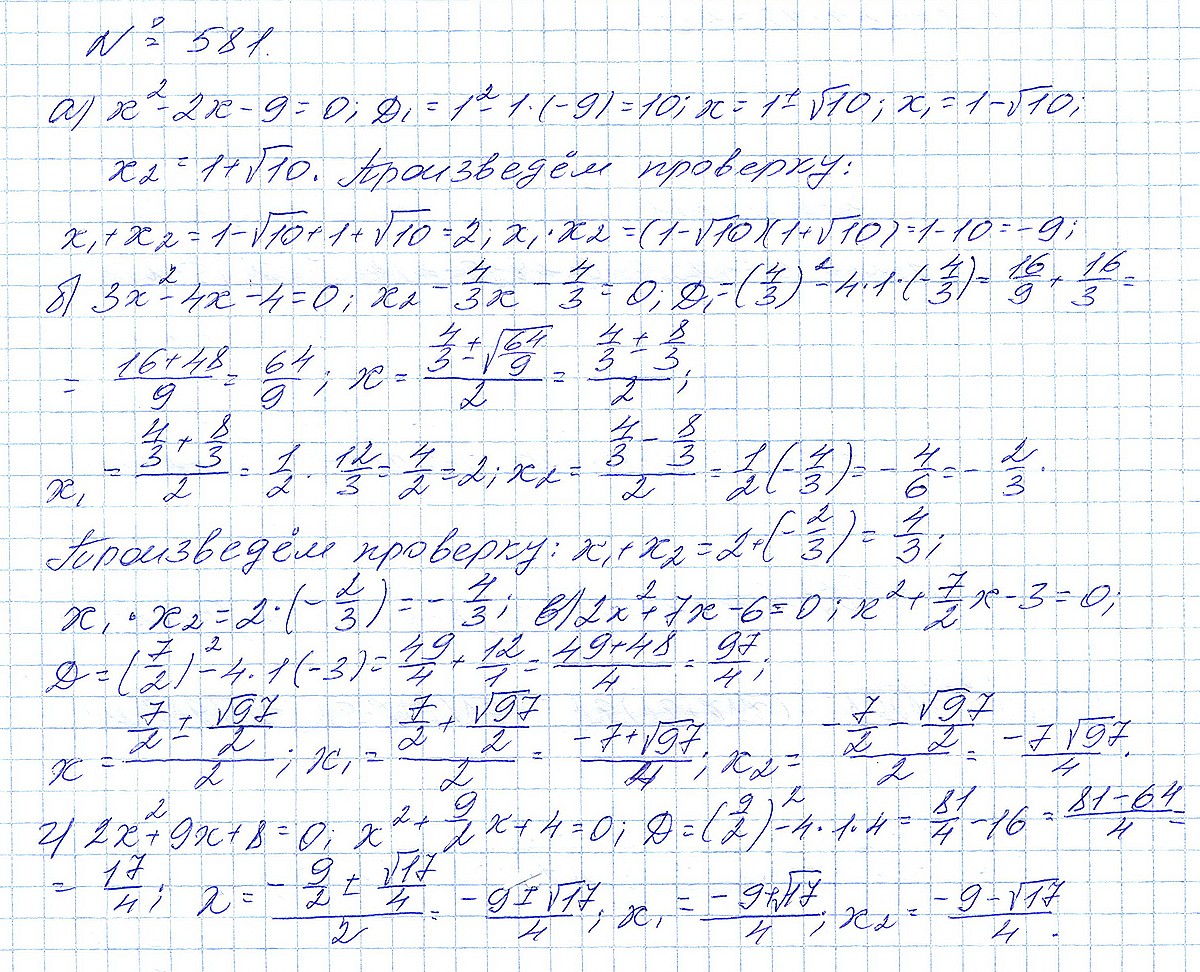 № 581.
а) x² - 2x - 9 = 0; D₁ = 1² - 1·(-9) = 10; x = 1 ± √10; x₁ = 1 - √10;
x₂ = 1 + √10. Произведём проверку:
x₁ + x₂ = 1 - √10 + 1 + √10 = 2; x₁·x₂ = (1 - √10)(1 + √10) = 1 - 10 = -9;
б) 3x² - 4x - 4 = 0; x2 - 4/3 x - 4/3 = 0; D₁ = (4/3)² - 4·1·(-4/3) = 16/9 + 16/3 =
= (16+48)/9 = 64/9; x = (4/3 ± √(64/9))/2 = (4/3 ± 8/3)/2;
x₁ = (4/3 + 8/3)/2 = 1/2 · 12/3 = 4/2 = 2; x₂ = (4/3 - 8/3)/2 = 1/2(-4/3) = -4/6 = -2/3.
Произведём проверку: x₁ + x₂ = 2 + (-2/3) = 4/3;
x₁·x₂ = 2·(-2/3) = -4/3; в) 2x² + 7x - 6 = 0; x² + 7/2 x - 3 = 0;
D = (7/2)² - 4·1(-3) = 49/4 + 12/1 = (49+48)/4 = 97/4;
x = (7/2 ± √97/2)/2; x₁ = (7/2 + √97/2)/2 = (-7+√97)/4; x₂ = (-7/2 - √97/2)/2 = (-7 √97)/4.
г) 2x² + 9x + 8 = 0; x² + 9/2 x + 4 = 0; D = (9/2)² - 4·1·4 = 81/4 - 16 = (81-64)/4 =
= 17/4; x = (-9/2 ± √17/4)/2 = (-9 ± √17)/4; x₁ = (-9+√17)/4; x₂ = (-9-√17)/4.